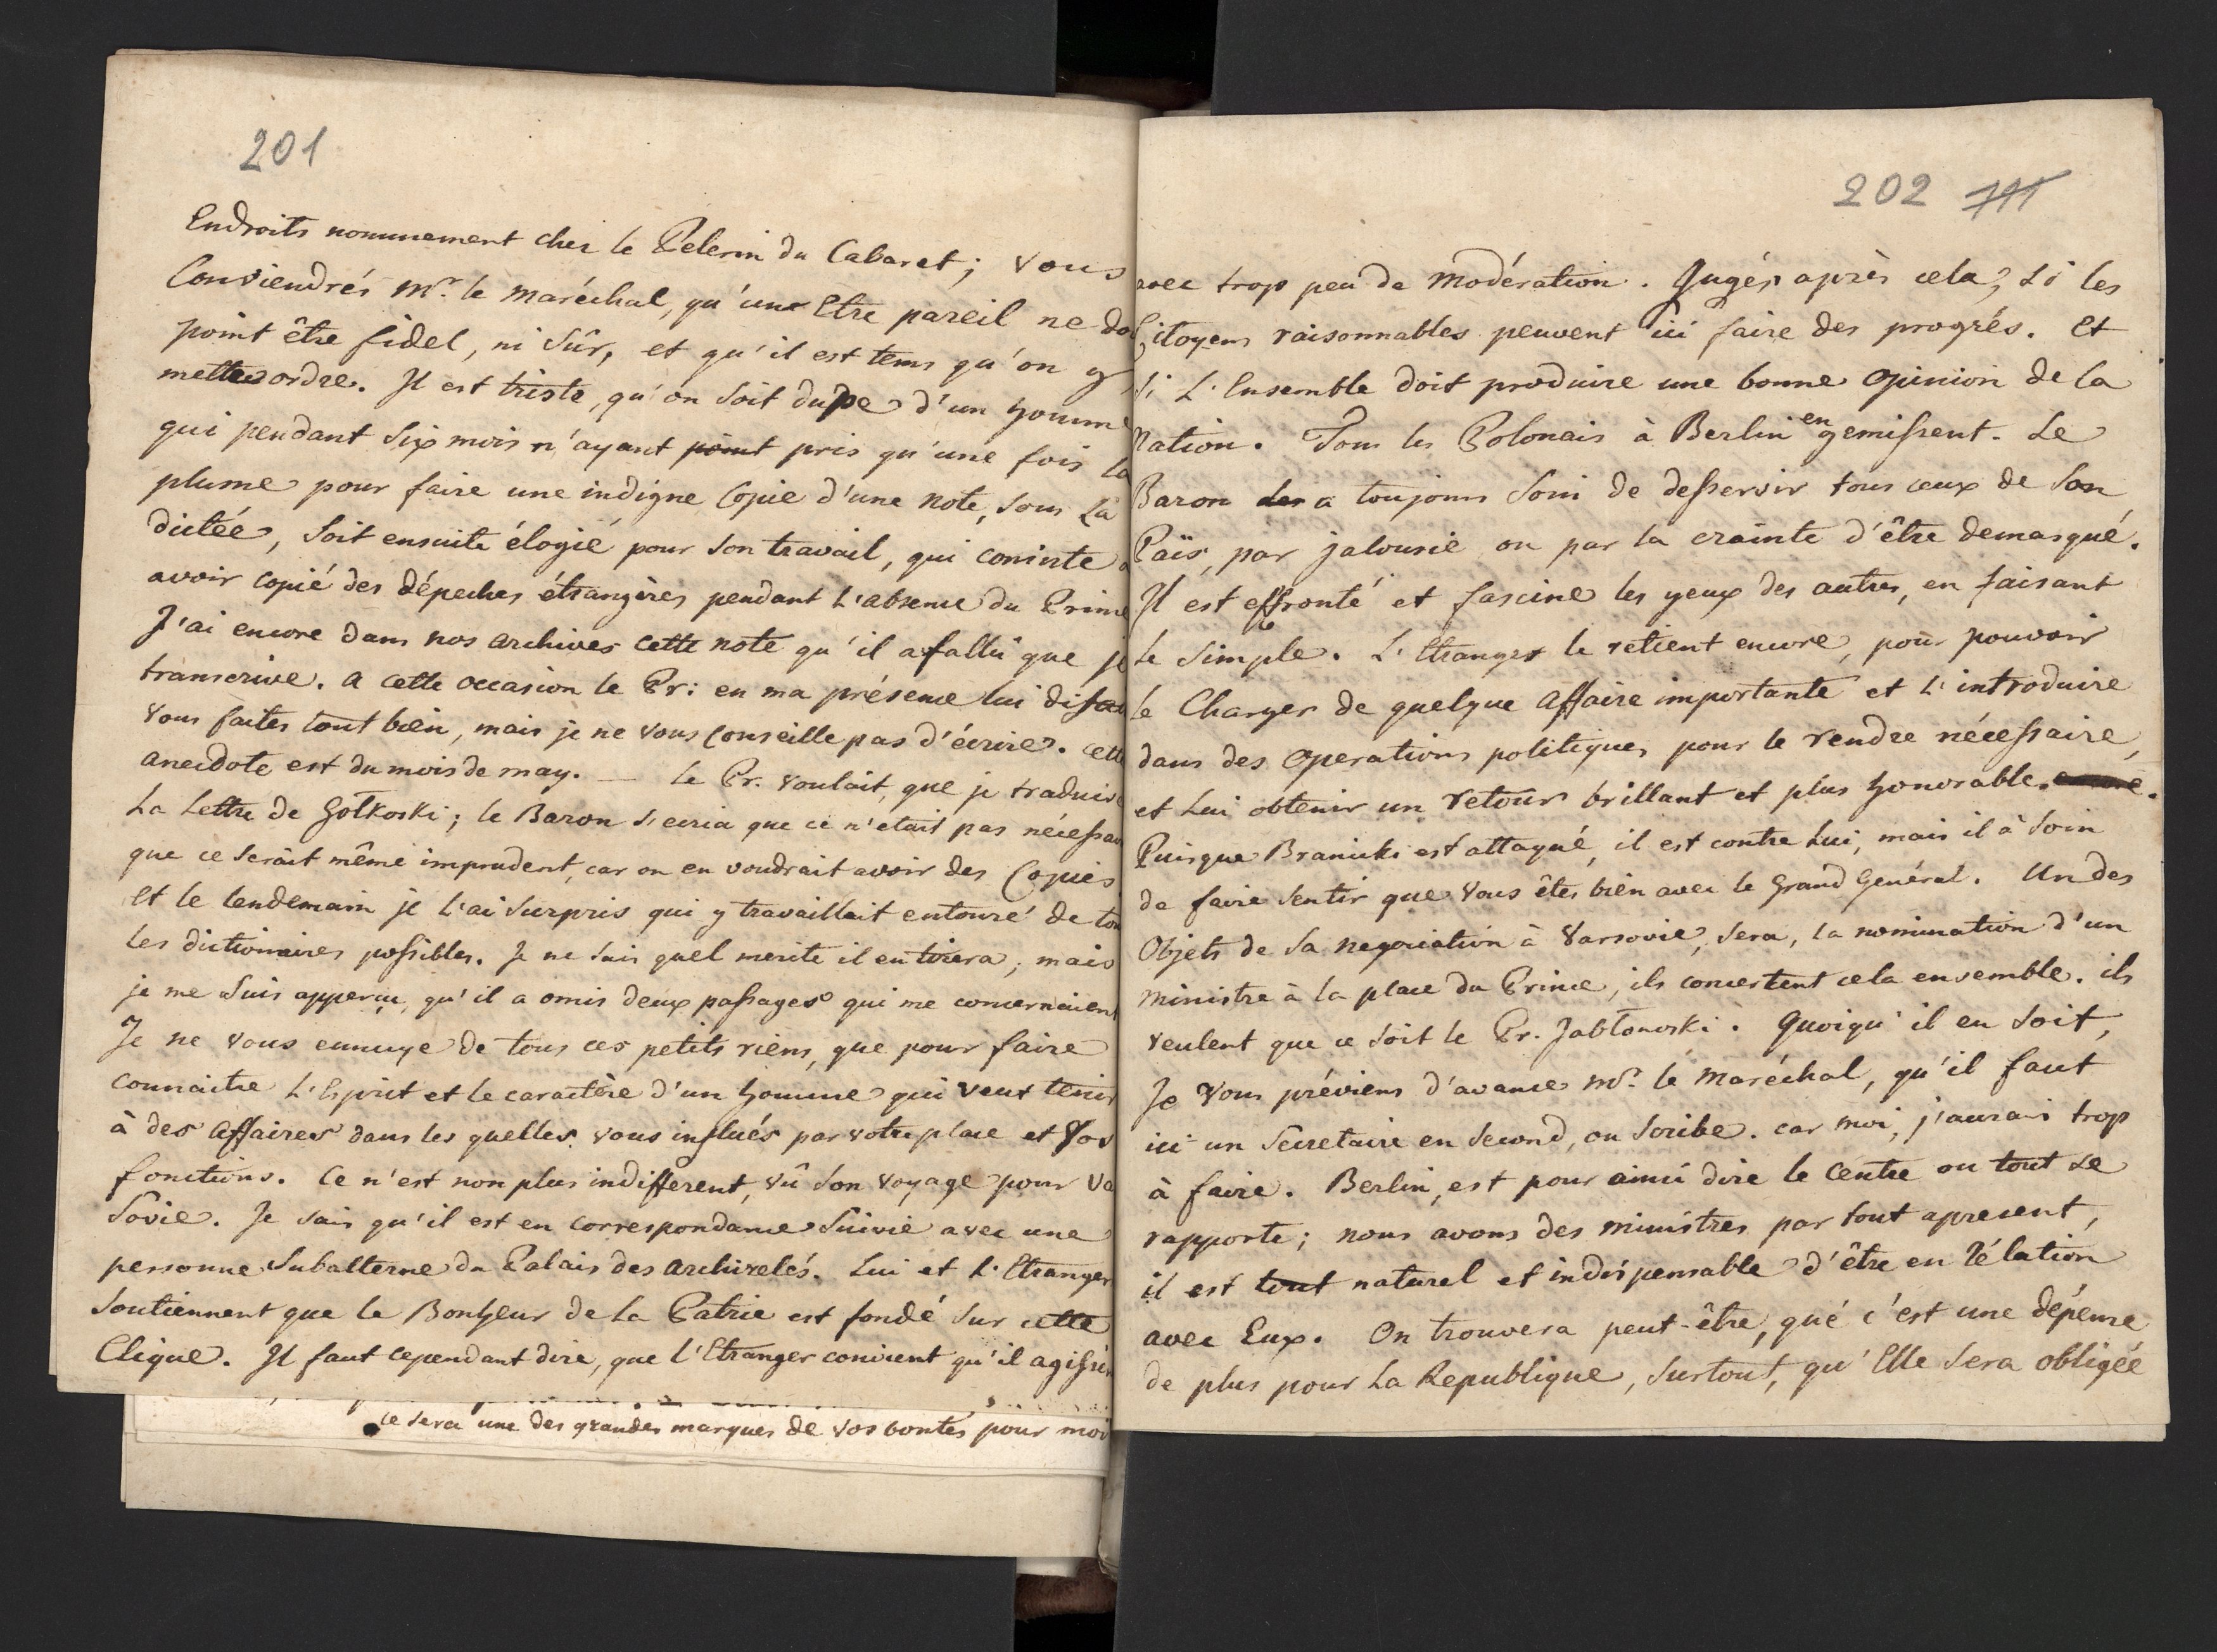 201
Endroits nommement chez le Pelerin du Cabaret; vous
Conviendrés Mr. le Maréchal, qu'un Etre pareil ne do
point être fidel, ni Sûr, et qu'il est tems qu'on y
mette ordre. Il est triste, qu'on soit dupe d'un homme
qui pendant Six mois n'ayant point pris qu'une fois la
plume pour faire une indigne Copie d'une Note, sous La
dictée, soit ensuite élogié pour son travail, qui consiste a
avoir copié des dépeches étrangères pendant l'absence du Prince
J'ai encore dans nos archives cette note qu'il a fallu que je
transcrive. a cette occasion le Pr: en ma présence lui disai
Vous faites tout bien, mais je ne vous conseille pas d'écrire. cette
anecdote est du mois de may. — le Pr. voulait, que je traduise
La Lettre de Golkoski; le Baron s'ecria que ce n'etait pas nécessai
que ce serait même imprudent, car on en voudrait avoir des Copies
Et le lendemain je l'ai surpris qui y travaillait entouré de tou
les dictionaires possibles. Je ne sais quel merite il en tirera, mais
je me suis apperçu, qu'il a omis deux passages qui me concernaient
Je ne vous ennuye de tous ces petits riens, que pour faire
connaitre L'Esprit et le caractère d'un homme qui veut tenir
à des affaires dans les quelles vous influés par votre place et Vos
fonctions. Ce n'est non plus indifferent, vû son voyage pour Va
sovie. Je sais qu'il est en correspondance Suivie avec une
personne Subalterne du Palais des archivelés. Lui et L'Etranger
Soutiennent que le Bonheur de la Patrie est fondé sur cette
Clique. Il faut cependant dire, que l'Etranger convient qu'il agissen
ce sera une des grandes marques de vos bontés pour moi
202 711
avec trop peu de modération. Jugés après cela, si les
Citoyens raisonnables peuvent ici faire des progrés. Et
si L'Ensemble doit produire une bonne opinion de la
Nation. Tous les Polonais à Berlin en gemissent. Le
Baron a toujours soin de desservir tous ceux de son
Païs, par jalousie ou par la crainte d'être demasqué.
Il est effronté et fascine les yeux des autres, en faisant
le simple. L'Etranger le retient encore, pour pouvoir
le Charger de quelque affaire importante et l'introduire
dans des operations politiques pour le rendre nécessaire,
et Lui obtenir un retour brillant et plus honorable.
Puisque Branicki est attaqué, il est contre Lui, mais il à soin
de faire sentir que vous êtes bien avec le Grand Général. Un des
Objets de sa negociation à Varsovie, sera, la nomination d'un
Ministre à la place du Prince, ils concertent cela ensemble. ils
veulent que ce soit le Pr. Jabłonowski. Quoiqu'il en soit,
Je Vous préviens d'avance Mr. le Maréchal, qu'il faut
ici un Sécretaire en second, ou scribe. car moi, j'aurais trop
à faire. Berlin, est pour ainsi dire le Centre ou tout se
rapporte; nous avons des ministres par tout apresent,
il est tout naturel et indispensable d'être en rélation
avec Eux. On trouvera peut-être, que c'est une dépense
de plus pour La Republique, surtout, qu'Elle sera obligée